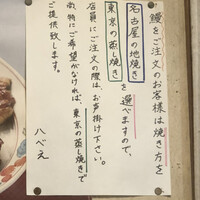 鰻をご注文のお客様は焼き方を
名古屋の地焼き
東京の蒸し焼き
を選べますので、
店員にご注文の際は、お声掛け下さい。
尚、特にご希望がなければ、東京の蒸し焼きで
ご提供致します。
八べえ